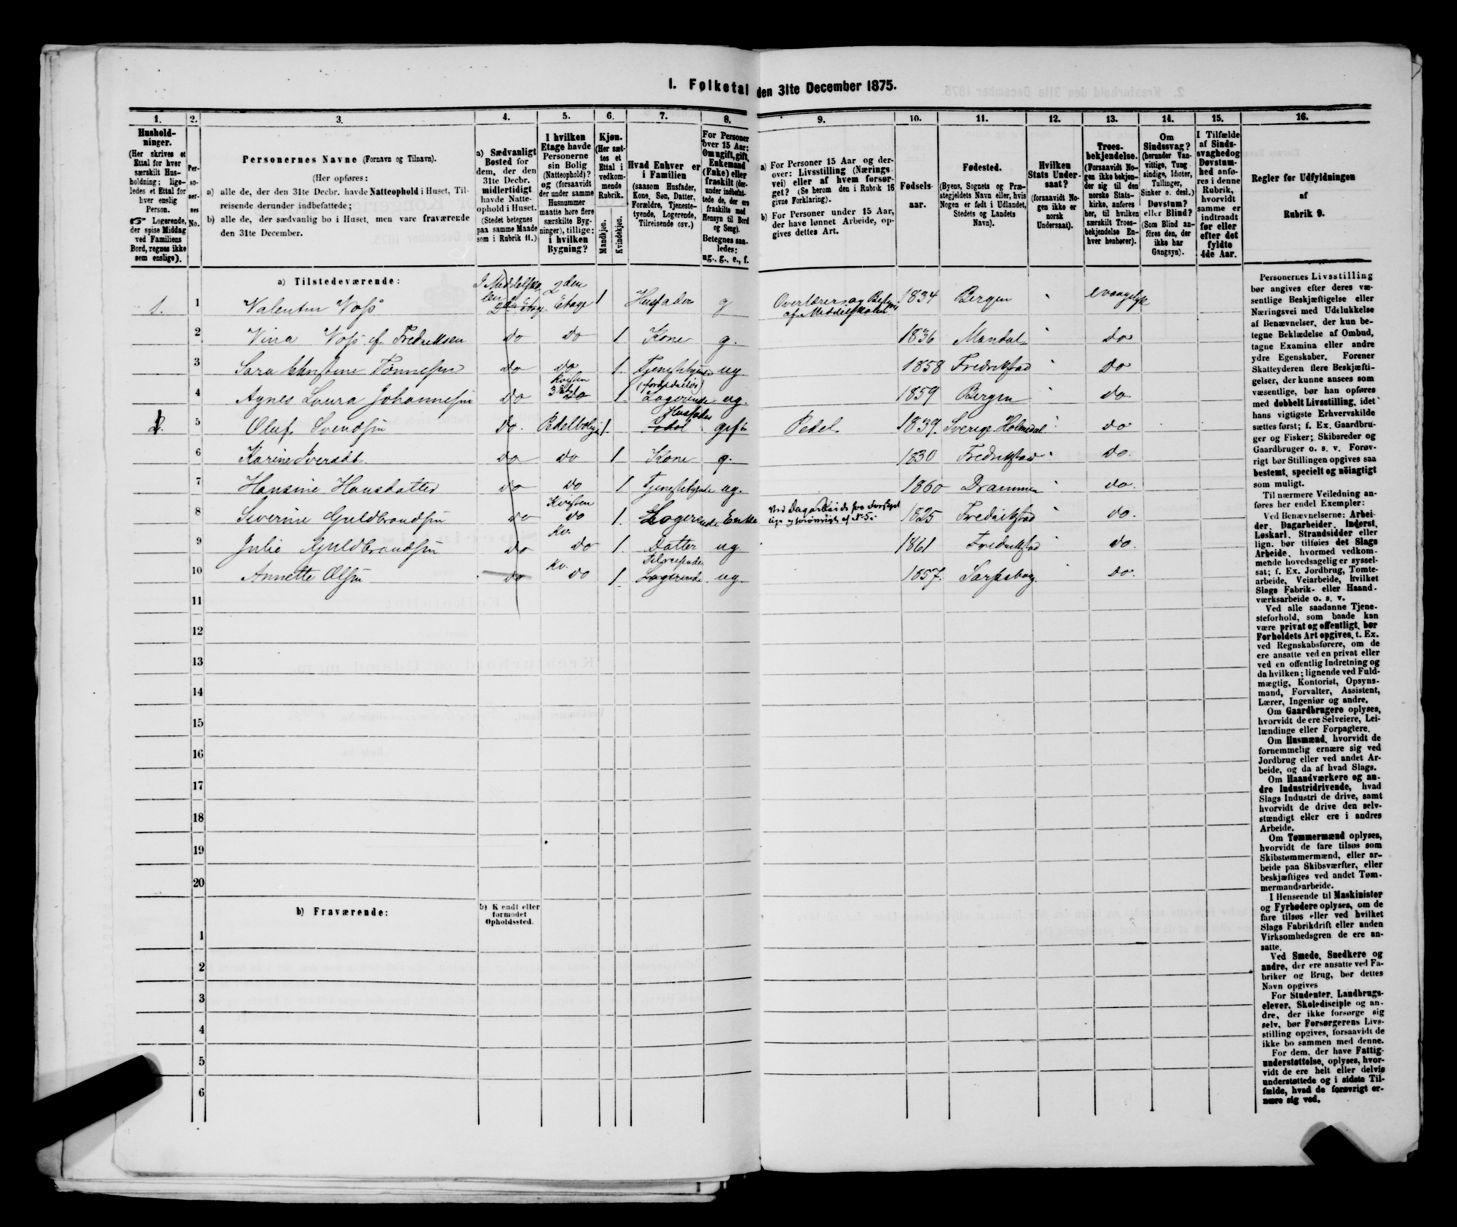 I. Folketal den 31te December 1875.
1. 2. 3. 4. 5. 6. 7. 8. 9. 10. 11. 12. 13. 14. 15. 16.
Hushold-
ninger.
(Her skrives et
Ettal for hver
særskilt Hus-
holdning; lige-
ledes et Ettal for
hver enslig
Person.
☞ Logerende,
der spise Middag
ved Familiens
Bord, regnes ikke
som enslige).
Per-
so-
ner-
nes
No.
Personernes Navne (Fornavn og Tilnavn).
(Her opføres:
a) alle de, der den 31te Decbr. havde Natteophold i Huset, Til-
reisende derunder indbefattede;
b) alle de, der sædvanlig bo i Huset, men vare fraværende
den 31te December.
a) Sædvanligt
Bosted for
dem, der den
31te Decbr.
midlertidigt
havde Natte-
ophold i Huset.
(Stedet betegnes
paa samme Maade
som i Rubrik 11.)
I hvilken
Etage havde
Personerne
sin Bolig
(Natteophold)?
og (forsaavidt
der under samme
Husnummer
maatte høre flere
særskilte Byg-
ninger), tillige:
i hvilken
Bygning?
Kjøn.
(Her sæt-
tes et
Ettal i
vedkom-
mende
Rubrik.
Mandkjøn.
Kvindekjøn.
Hvad Enhver er
i Familien
(saasom Husfader,
Kone, Søn, Datter,
Forældre, Tjeneste-
tyende, Logerende,
Tilreisende osv.)
For Personer
over 15 Aar:
Om ugift, gift,
Enkemand
(Enke) eller
fraskilt (der-
under indbefat-
tede de, der ere
fraskilte med
Hensyn til Bord
og Seng).
Betegnes saa-
ledes:
ug., g., e., f.
a) For Personer 15 Aar og der-
over: Livsstilling (Nærings-
vei) eller af hvem forsør-
get? (Se herom den i Rubrik 16
givne Forklaring).
b) For Personer under 15 Aar,
der have lønnet Arbeide, op-
gives dettes Art.
Fødsels-
aar.
Fødested.
(Byens, Sognets og Præ-
stegjeldets Navn eller, hvis
Nogen er født i Udlandet,
Stedets og Landets
Navn).
Hvilken
Stats Under-
saat?
(forsaavidt No-
gen ikke er
norsk
Undersaat).
Troes-
bekjendelse.
(Forsaavidt No-
gen ikke bekjen-
der sig til den
norske Stats-
kirke, anføres
her, til hvilken
særskilt Troes-
bekjendelse En-
hver henhører).
Om
Sindssvag?
(herunder Van-
vittige, Tung-
sindige, Idioter,
Tullinger,
Sinker o. desl.)
Døvstum?
eller Blind?
(Som Blind an-
føres den, der
ikke har
Gangsyn).
I Tilfælde
af Sinds-
svaghed og
Døvstum-
hed anfø-
res i denne
Rubrik,
hvorvidt
samme er
indtraadt
før eller
efter det
fyldte
4de Aar.
Regler for Udfyldningen
af
Rubrik 9.
a) Tilstedeværende:
1. 1 Valentin Voss 2den Etage 1 Husfader g 1834 Bergen
2 Vina Voss f. Fredriksen do do 1 Kone g. 1836 Mandal do
3 Sara Christine Tønnesen do do 1 ug 1858 Fredrikstad do
4 Agnes Laura Johannesen do Kvisten do 1 Logerende ug. 1859 Bergen do
5 Oluf Svendsen do. 1. Husfader gift Pedel 1839. Sverige do
6 Karine do do 1 Kone g. 1830 Fredrikstad do
7 Hansine Hansdatter do do 1 ug. 1860 Drammen do.
8 Severine Guldbrandsen do Kvisten do 1. Logerende Enke 1825 Fredrikstad do.
9 Julie Guldbrandsen do Kv. do 1 Datter ug 1861 Fredrikstad do.
10 Annette Olsen do Kv. do 1 Tilreisende Logerende ug. 1857. Sarpsborg do.
11
12
13
14
15
16
17
18
19
20
b) Fraværende:
b) Kjendt eller
formodet
Opholdssted.
1
2
3
4
5
6
Personernes Livsstilling
bør angives efter deres væ-
sentlige Beskjæftigelse eller
Næringsvei med Udelukkelse
af Benævnelser, der kun be-
tegne Beklædelse af Ombud,
tagne Examina eller andre
ydre Egenskaber. Forener
Skatteyderen flere Beskjæfti-
gelser, der kunne ansees som
væsentlige, bør han opføres
med dobbelt Livsstilling, idet
hans vigtigste Erhvervskilde
sættes først; f. Ex. Gaardbru-
ger og Fisker; Skibsreder og
Gaardbruger o. s. v. Forøv-
rigt bør Stillingen opgives saa
bestemt, specielt og nøiagtigt
som muligt.
Til nærmere Veiledning an-
føres her endel Exempler:
Ved Benævnelserne: Arbei-
der, Dagarbeider, Inderst,
Løskarl, Strandsidder eller
lign. bør tilføies det Slags
Arbeide, hvormed vedkom-
mende hovedsagelig er syssel-
sat; f. Ex. Jordbrug, Tomte-
arbeide, Veiarbeide, hvilket
Slags Fabrik- eller Haand-
værksarbeide o. s. v.
Ved alle saadanne Tjene-
steforhold, som baade kan
være privat og offentligt, bør
Forholdets Art opgives, t. Ex.
ved Regnskabsførere, om de
ere ansatte ved en privat eller
ved en offentlig Indretning og
da hvilken; lignende ved Fuld-
mægtig, Kontorist, Opsyns-
mand, Forvalter, Assistent,
Lærer, Ingeniør og andre.
Om Gaardbrugere oplyses,
hvorvidt de ere Selveiere, Lei-
lændinge eller Forpagtere.
Om Husmænd, hvorvidt de
fornemmelig ernære sig ved
Jordbrug eller ved andet Ar-
beide, og da af hvad Slags.
Om Haandværkere og an-
dre Industridrivende, hvad
Slags Industri de drive, samt
hvorvidt de drive den selv-
stændigt eller ere i andres
Arbeide.
Om Tømmermænd oplyses,
hvorvidt de fare tilsøs som
Skibstømmermænd, eller ar-
beide paa Skibsværfter, eller
beskjæftiges ved andet Tøm-
mermandsarbeide.
I Henseende til Maskinister
og Fyrbødere oplyses, om de
fare tilsøs eller ved hvilket
Slags Fabrikdrift eller anden
Virksomhedsgren de ere an-
satte.
Ved Smede, Snedkere og
andre, der ere ansatte ved Fa-
briker og Brug, bør dettes
Navn opgives
For Studenter, Landbrugs-
elever, Skoledisciple og an-
dre, der ikke forsørge sig
selv, bør Forsørgerens Livs-
stilling opgives, forsaavidt de
ikke bo sammen med denne.
For dem, der have Fattig-
understøttelse, oplyses, hvor-
vidt de ere helt eller delvis
understøttede og i sidste Til-
fælde, hvad de forøvrigt er-
nære sig ved.